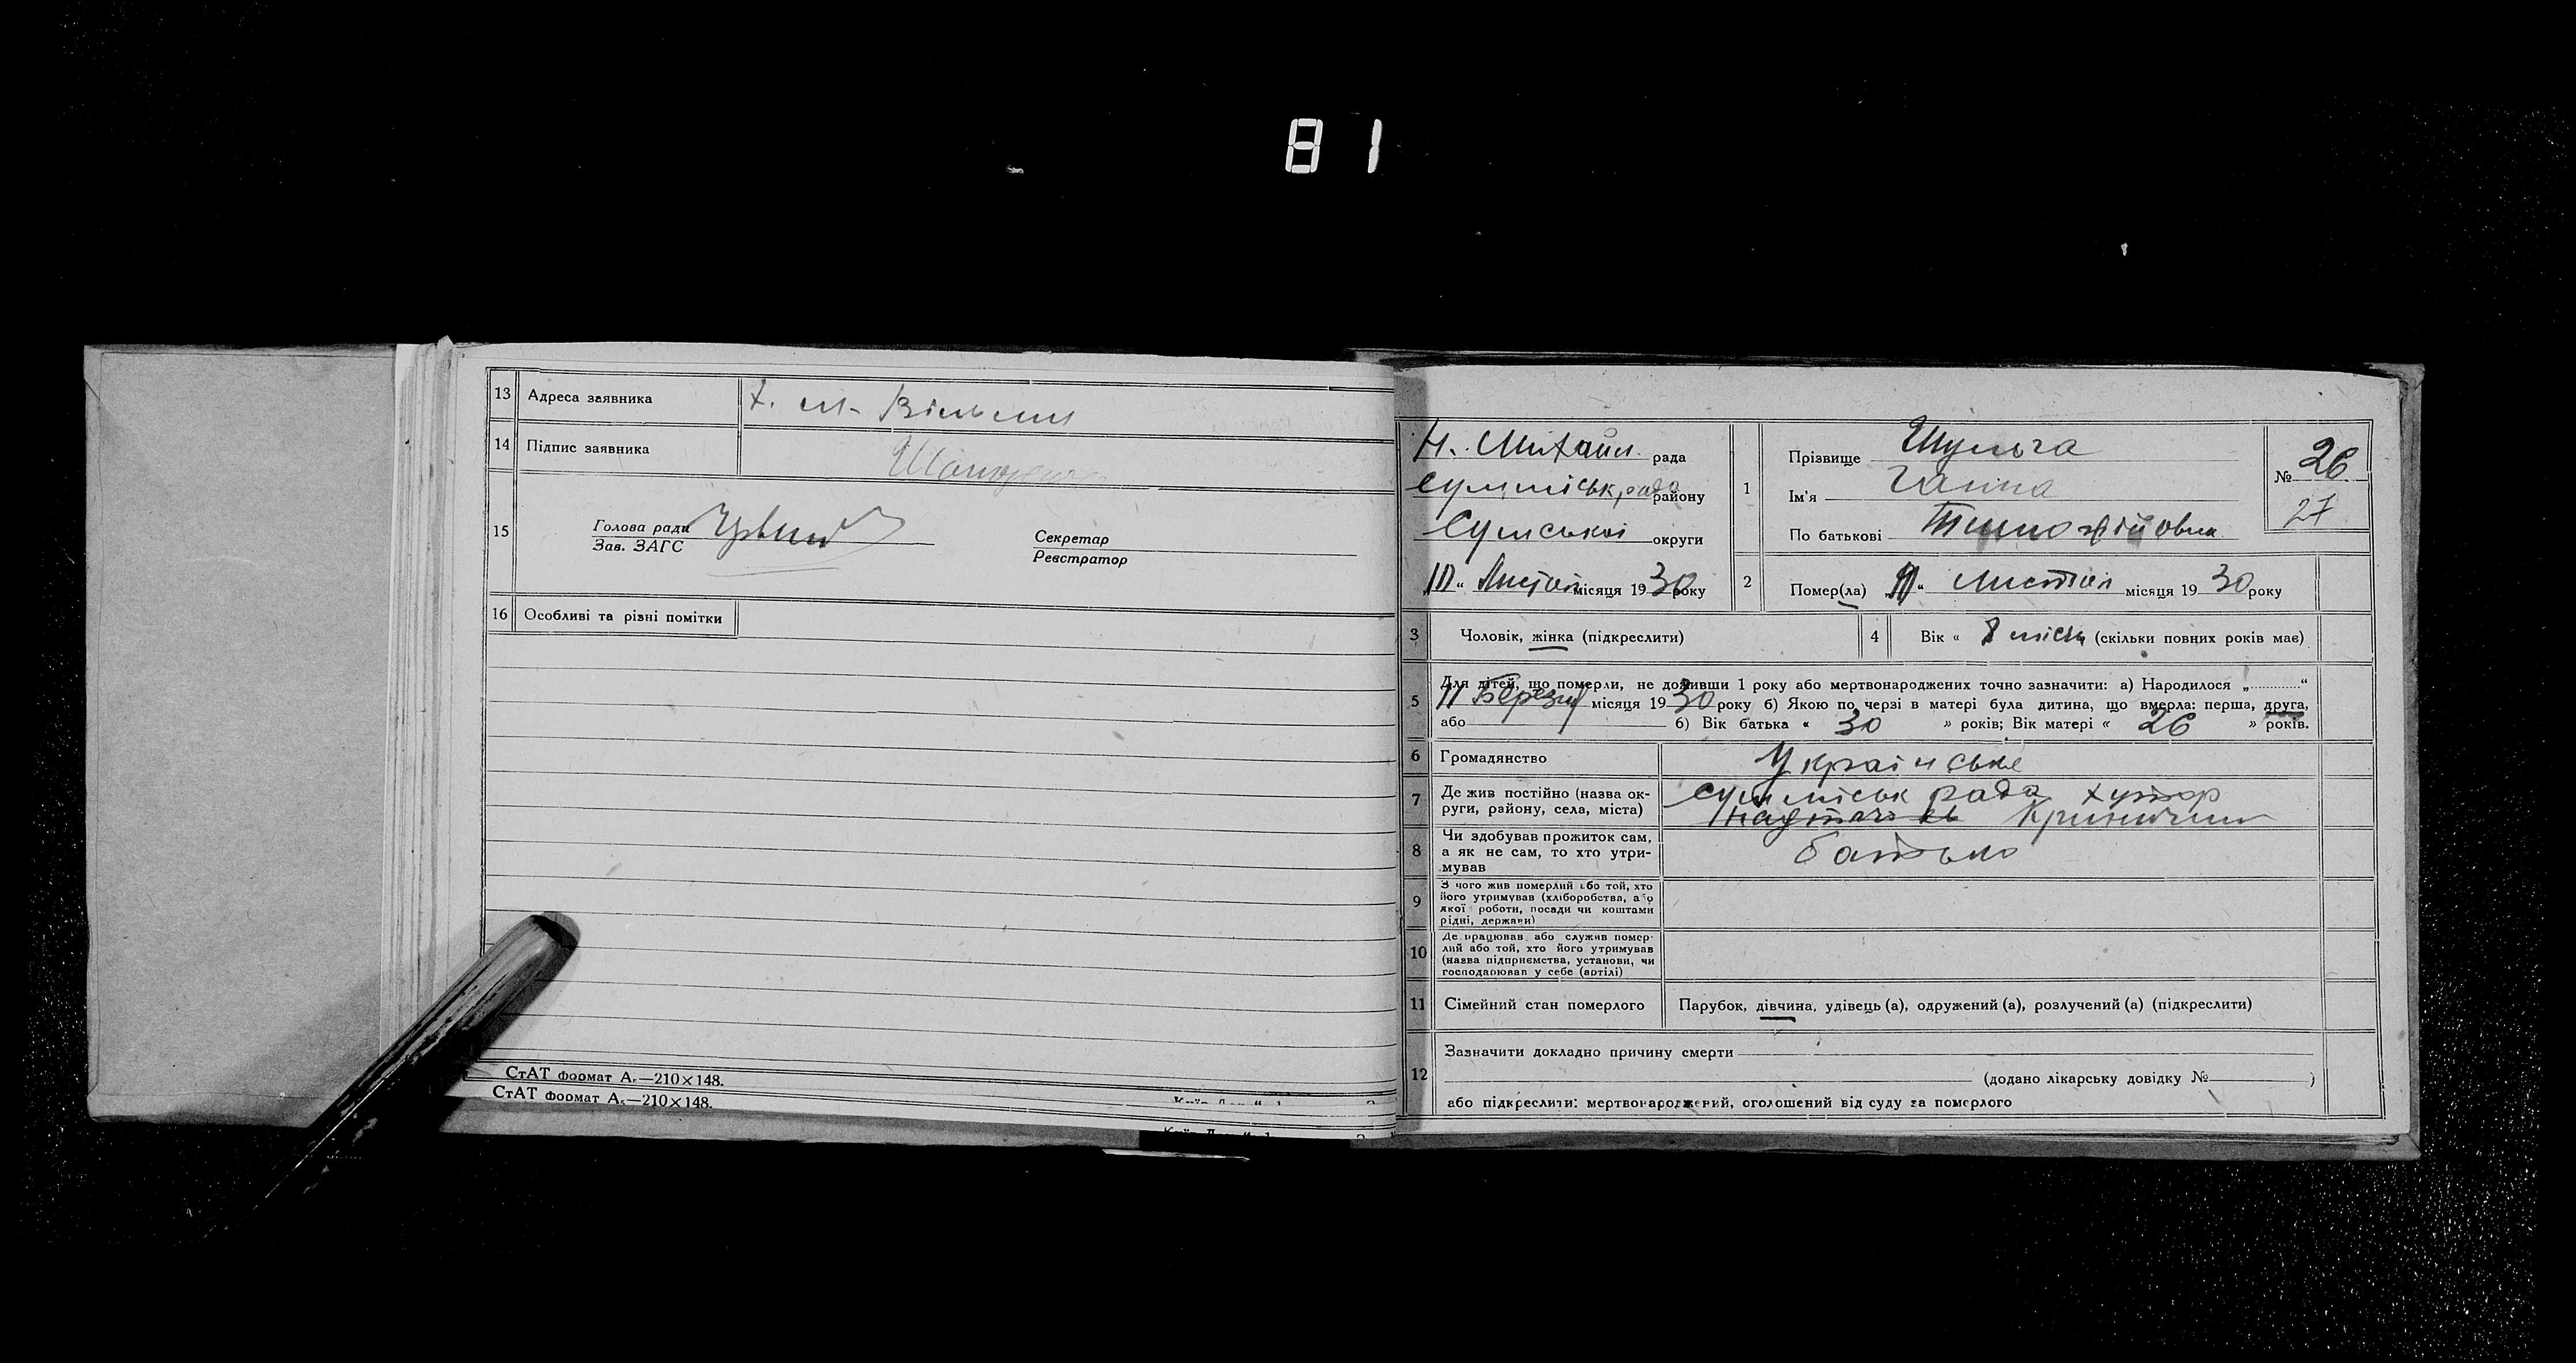 81
13 Адреса заявника
14 Підпис заявника
15 Голова ради
Зав. ЗАГС
Секретар
Реєстратор
16 Особливі та різні помітки
СтАТ формат А₅—210×148.
СтАТ формат А₅—210×148.
Н. Михайл. рада
Сумміськрада району
Сумської округи
„11“ Листоп місяця 1930 року
1 Прізвище Шульга
Ім'я Ганна
По батькові Тимофійовна
№ 26
27
2 Помер(ла) „11“ листоп місяця 1930 року
3 Чоловік, жінка (підкреслити)
4 Вік « 8 місяц (скільки повних років має)
5 Для дітей, що померли, не доживши 1 року або мертвонароджених точно зазначити: а) Народилося „ “
11 Березня місяця 1930 року б) Якою по черзі в матері була дитина, що вмерла: перша, друга,
або б) Вік батька « 30 » років; Вік матері « 26 » років.
6 Громадянство Українське
7 Де жив постійно (назва ок-
руги, району, села, міста)
Сумміськ рада хутор
Криничне
8 Чи здобував прожиток сам,
а як не сам, то хто утри-
мував
батько
9 З чого жив померлий або той, хто
його утримував (хліборобства, або
якої роботи, посади чи коштами
рідні, держави)
10 Де працював або служив помер-
лий або той, хто його утримував
(назва підприємства, установи, чи
господарював у себе (артілі)
11 Сімейний стан померлого Парубок, дівчина, удівець (а), одружений (а), розлучений (а) (підкреслити)
12 Зазначити докладно причину смерти
(додано лікарську довідку № )
або підкреслити: мертвонароджений, оголошений від суду за померлого